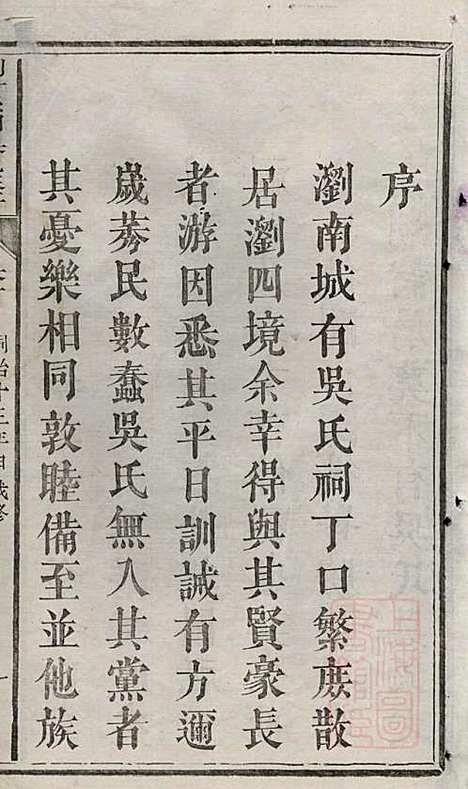 序
瀏南城有吳氏祠丁口繁庶散
居瀏四境余幸得與其賢豪長
者游因悉其平日訓誡有方邇
歲莠民數蠢吳氏無入其黨者
其憂樂相同敦睦備至並他族
同治十三年甲戌修
一